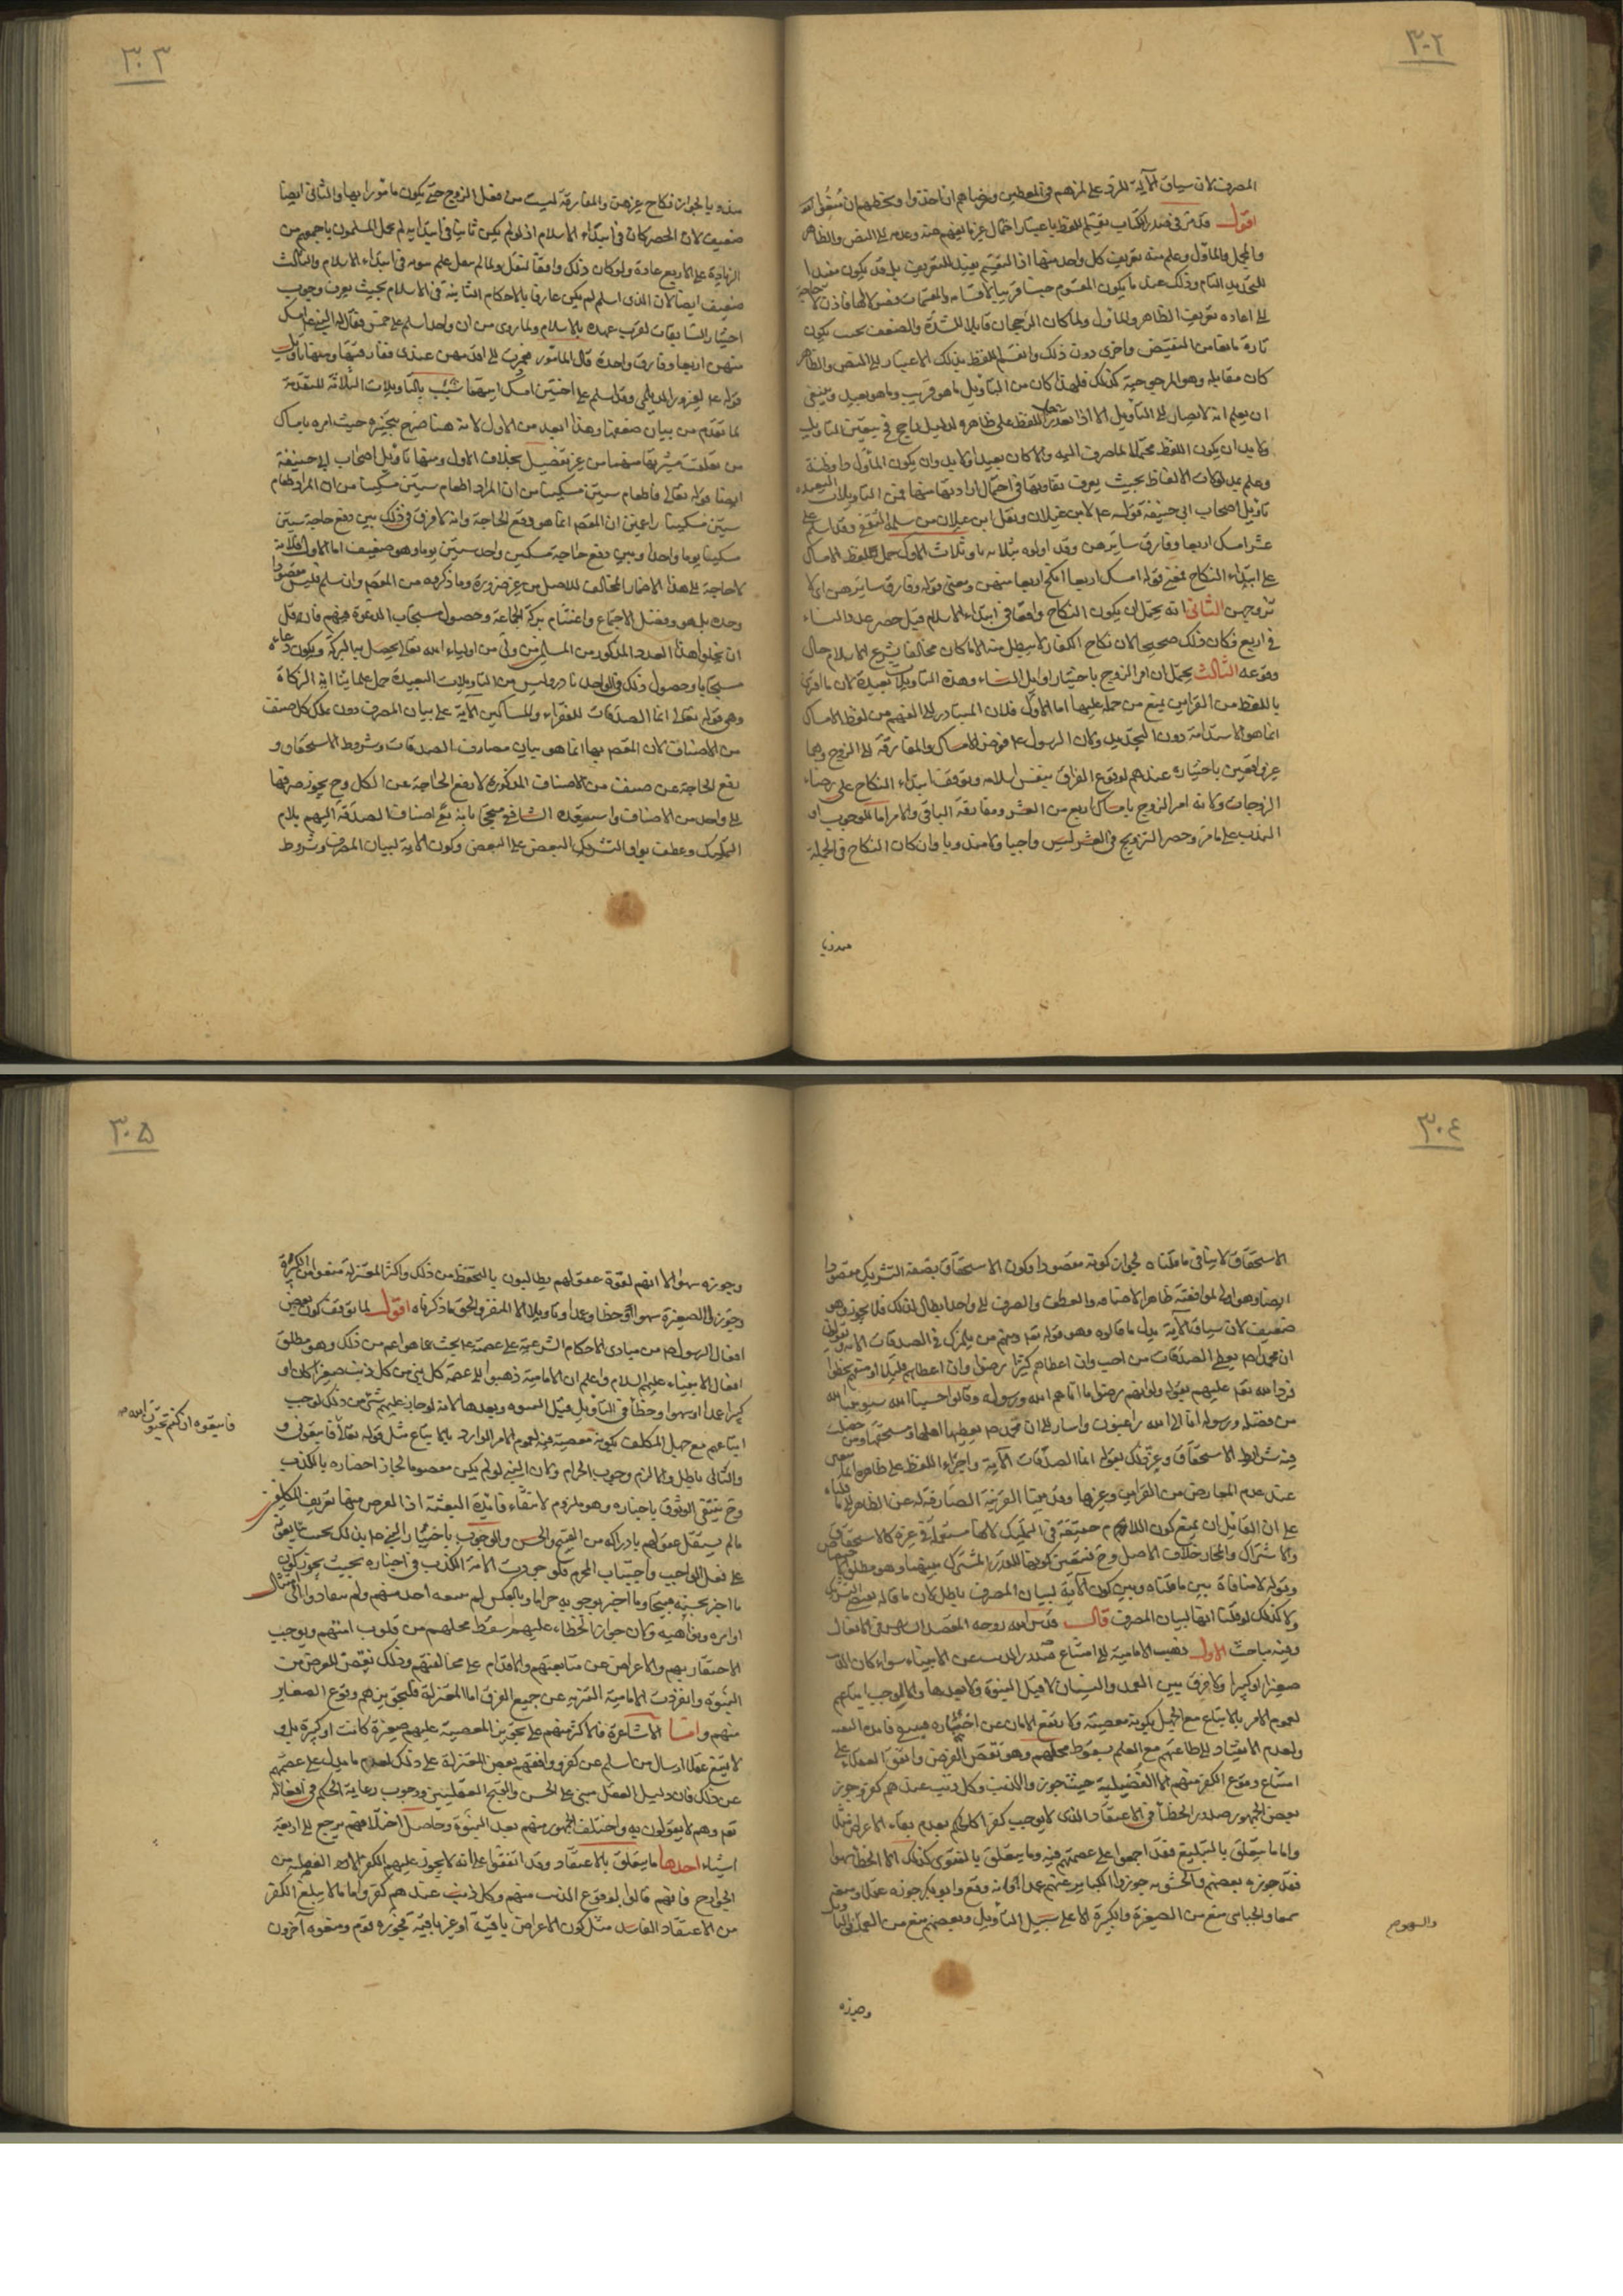 ٣٠٢
المصرف لان سياق الآية للرد على لمزهم في المعطين ورضاهم ان اخذوا وسخطهم ان منعوا
اقول قد مر في صدر الكتاب تقسيم اللفظ باعتبار احتمال غير ما يفهم منه وعدمه الى النص والظاهر
والمجمل والماول وعلم منه تعريف كل واحد منها اذ التقسيم يفيد التعريف بل قد يكون مفيدا
للتحديد التام وذلك عند ما يكون المقسوم جنسا قريبا للاقسام والمقسمات فصولا لها فاذن لا حاجة
الى اعادة تعريف الظاهر والماول ولما كان الرجحان قابلا للشدة والضعف بحيث يكون
تارة مانعا من النقيض واخرى دون ذلك وانقسام اللفظ بذلك الاعتبار الى النص والظاهر
كان مقابله وهو المرجوحية كذلك فلهذا كان من التأويل ما هو قريب وما هو بعيد وينبغي
ان يعلم انه لا يصار الى التأويل الا اذا تعذر حمل اللفظ على ظاهره لدليل راجح في تعيين التأويل
ولا بد ان يكون اللفظ محتملا لما صرف اليه والا كان بعيدا ولا بد وان يكون المأول ذا فطنة
وعلم بمدلولات الالفاظ بحيث يعرف تفاوتها في احتمال ارادتها منها فمن التأويلات البعيدة
تأويل اصحاب ابي حنيفة قوله ع لابن غيلان ونقل ابن غيلان من سلمة الثقفي وقد اسلم على
عشر امسك اربعا وفارق سايرهن وقد اولوه بثلاثة تاويلات الاول حمل اللفظ الامساك
على ابتداء النكاح فمعنى قوله امسك اربعا انكح اربعا منهن ومعنى قوله وفارق سايرهن اي لا
تزوجهن الثاني انه يحتمل ان يكون النكاح واقعا في ابتداء الاسلام قبل حصر عدد النساء
في اربع فكان ذلك صحيحا لان نكاح الكفار لا يبطل منه الا ما كان مخالفا لشرع الاسلام حال
وقوعه الثالث يحتمل ان امر الزوج باختيار اوايل النساء وهذه التاويلات بعيدة لان ما اقترن
باللفظ من القراين يمنع من حمله عليها اما الاول فلان المتبادر الى الفهم من لفظ الامساك
انما هو الاستدامة دون التجديد ولان الرسول ع فوض الامساك والمفارقة الى الزوج وهما
غير واقعين باختياره عندهم لوقوع الفراق بنفس اسلامه وتوقف ابتداء النكاح على رضاء
الزوجات ولانه امر الزوج بامساك اربع من العشر ومفارقة الباقي والامر اما للوجوب او
الندب على ما مر وحصر التزويج في العشر ليس واجبا ولا مندوبا وان كان النكاح في الجملة
مندوبا
٣٠٣
مندوبا لجواز نكاح غيرهن والمفارقة ليست من فعل الزوج حتى يكون مامورا بها والثاني ايضا
ضعيف لان الحصر كان في ابتداء الاسلام اذ لو لم يكن ثابتا في ابتدائه لم يخل المسلمون باجمعهم من
الزيادة على الاربع عادة ولو كان ذلك واقعا لنقل ولما لم ينقل علم ثبوته في ابتداء الاسلام والثالث
ضعيف ايضا لان الذي اسلم لم يكن عارفا بالاحكام الثابتة في الاسلام بحيث يعرف وجوب
اختيار السابقات لقرب عهده بالاسلام ولما روى من ان واحدا اسلم على خمس فقال له النبي ع امسك
منهن اربعا وفارق واحدة قال المامور فعمدت الى اقدمهن عندي ففارقتها ومنها تاويلهم
قوله ع لفيروز الديلمي وقد اسلم على اختين امسك ايتهما شئت بالتأويلات الثلاثة المتقدمة
لما تقدم من بيان ضعفها وهذا ابعد من الاول لانه هنا صرح بتخييره حيث امره بامساك
من تعلقت مشيته بها منهما من غير تفصيل بخلاف الاول ومنها تاويل اصحاب ابي حنيفة
ايضا قوله تعالى فاطعام ستين مسكينا من ان المراد اطعام ستين مسكينا من ان المراد طعام
ستين مسكينا زاعمين ان المقصد انما هو دفع الحاجة وانه لا فرق في ذلك بين دفع حاجة ستين
مسكينا يوما واحدا وبين دفع حاجة مسكين واحد ستين يوما وهو ضعيف اما الاول فلانه
لا حاجة الى هذا الاضمار المخالف للاصل من غير ضرورة وما ذكروه من المقصد وان سلم فليس مقصودا
وحده بل هو وفضل الاجتماع واغتنام بركة الجماعة وحصول مستجاب الدعوة فيهم فانه قل
ان يخلوا هذا العدد المذكور من المسلمين من ولي من اولياء الله تعالى يحصل به البركة ويكون دعاءه
مستجابا وحصول ذلك في الواحد نادر وليس من التأويلات البعيدة حمل علمائنا آية الزكاة
وهي قوله تعالى انما الصدقات للفقراء والمساكين الآية على بيان المصرف دون ملك كل صنف
من الاصناف لان المقصد بها انما هو بيان مصارف الصدقات وشروط الاستحقاق و
دفع الحاجة عن صنف من الاصناف المذكورة لا دفع الحاجة عن الكل وح يجوز صرفها
الى واحد من الاصناف واستبعده الشافعي محتجا بانه تع اضاف الصدقة اليهم بلام
التمليك وعطف بواو التشريك البعض على البعض وكون الآية لبيان المصرف وشروط
٣٠٤
الاستحقاق لا ينافي ما قلناه لجواز كونه مقصودا وكون الاستحقاق بصفة التشريك مقصودا
ايضا وهو اولى لموافقته ظاهر الاضافة والعطف والصرف الى واحد ابطال لذلك فلا يجوز وهو
ضعيف لان سياق الآية يدل على ما قالوه وهو قوله تعا ومنهم من يلمزك في الصدقات الآية
ان محمدا ص يعطي الصدقات من احب وان اعطاهم كثيرا رضوا وان اعطاهم قليلا او منعهم سخطوا
فرد الله تعا عليهم بقوله ولو انهم رضوا ما اتاهم الله ورسوله وقالوا حسبنا الله سيؤتينا الله
من فضله ورسوله انا الى الله راغبون واشار الى ان محمدا ص يعطيها اهلها ومستحقها ومن حصلت
فيه شرائط الاستحقاق وعين ذلك بقوله انما الصدقات الآية واجراء اللفظ على ظاهره انما يتعين
عند عدم المعارض من القراين وغيرها وقد بينا القرينة الصارفة له عن الظاهر الى ما قلناه
على ان القائل ان يمنع كون اللام حقيقة في التمليك لانها مستعملة في غيره كالاستحقاق
والاشتراك والمجاز خلاف الاصل وح فيتعين كونها للقدر المشترك بينهما وهو مطلق الاختصاص
وقوله لا منافاة بين ما قلناه وبين كون الآية لبيان المصرف باطل لان ما قاله يقتضي التشريك
ولا كذلك لو قلنا انها لبيان المصرف قال قدس الله روحه الفصل السادس في الافعال
وفيه مباحث الاول ذهب الامامية الى امتناع صدور الذنب عن الانبياء سواء كان الذنب
صغيرا او كبيرا ولا فرق بين العمد والنسيان لا قبل النبوة ولا بعدها والا لوجب اتباعهم
لعموم الامر بالاتباع مع الجهل بكونه معصية ولا رتفع الامان عن اخباره فينتفي فائدة البعثة
ولعدم الانقياد الى طاعتهم مع العلم بسقوط محلهم وهو نقض الغرض واتفق العقلاء على
امتناع وقوع الكفر منهم الا الفضيلية حيث جوزوا الذنب وكل ذنب عندهم كفر وجوز
بعض الجمهور صدور الخطأ في الاعتقاد الذي لا يوجب كفرا كالحكم بعدم بقاء الاعراض مثلا
واما ما يتعلق بالتبليغ فقد اجمعوا على عصمتهم فيه وما يتعلق بالفتوى كذلك الا الخطأ سهوا
فقد جوزه بعضهم والحشوية جوزوا الكبائر عنهم عمدا الا انه وقع وابو بكر جوزه عقلا ومنع
سمعا والجبائي منع من الصغيرة والكبيرة الا على سبيل التأويل وبعضهم منع من العمد والتأويل
والسهو م
وجوزه
٣٠٥
وجوزه سهوا الا انهم لقوة عقولهم يطالبون بالتحفظ من ذلك واكثر المعتزلة منعوا من الكبيرة
وجوزوا الصغيرة سهوا او خطا وعمدا وتاويلا الا المنفر والحق ما ذكرناه اقول لما توقف كون بعض
افعال الرسول ص من مبادى الاحكام الشرعية على عصمته ع بحث عما هو اعم من ذلك وهو مطلق
افعال الانبياء عليهم السلام واعلم ان الامامية ذهبوا الى عصمة كل نبي من كل ذنب صغيرا كان او
كبيرا عمدا او سهوا وخطأ في التأويل قبل النبوة وبعدها لانه لو جاز عليهم شئ من ذلك لوجب
اتباعهم مع جهل المكلف بكونه معصية لعموم الامر الوارد بالاتباع مثل قوله تعالى فاتبعوني و
فاتبعوه ان كنتم تحبون الله م
والتالي باطل والا لزم وجوب الحرام ولان النبي لو لم يكن معصوما لجاز اخباره بالكذب
وح ينتفي الوثوق باخباره وهو ملزوم لانتفاء فائدة البعثة اذ الغرض منها تعريف المكلفين
ما لم يستقل عقولهم بادراكه من القبح والحسن والوجوب باخبار النبي ع بذلك بحيث يبعثهم
على فعل الواجب واجتناب المحرم فلو جوزت الامة الكذب في اخباره بحيث يجوز كون
ما اخبر بحسنه قبيحا وما اخبر بوجوبه حراما وبالعكس لم يتبعه احد منهم ولم ينقادوا الى امتثال
اوامره ونواهيه ولان جواز الخطاء عليهم يسقط محلهم من قلوب امتهم ويوجب
الاحتقار بهم والاعراض عن متابعتهم والاقدام على مخالفتهم وذلك نقض للغرض من
النبوة وانفردت الامامية التنزيه عن جميع الفرق اما المعتزلة فلتجويزهم وقوع الصغاير
منهم واما الاشاعرة فالاكثر منهم على تجويز المعصية عليهم صغيرة كانت او كبيرة بل و
لا يمتنع عقلا ارسال من اسلم عن كفر ووافقهم بعض المعتزلة على ذلك لعدم ما يدل على عصمتهم
عن ذلك فان دليل العقل مبنى على الحسن والقبح العقليين ووجوب رعاية الحكم في افعاله
تعا وهم لا يقولون به واختلف الجمهور منهم بعد النبوة وحاصل اختلافهم يرجع الى اربعة
اشياء احدها ما يتعلق بالاعتقاد وقد اتفقوا على انه لا يجوز عليهم الكفر الا الفضيلية من
الخوارج فانهم قالوا بوقوع الذنب منهم وكل ذنب عندهم كفر واما ما لا يبلغ الكفر
من الاعتقاد الفاسد مثل كون الاعراض باقية او غير باقية فجوزه قوم ومنعه آخرون